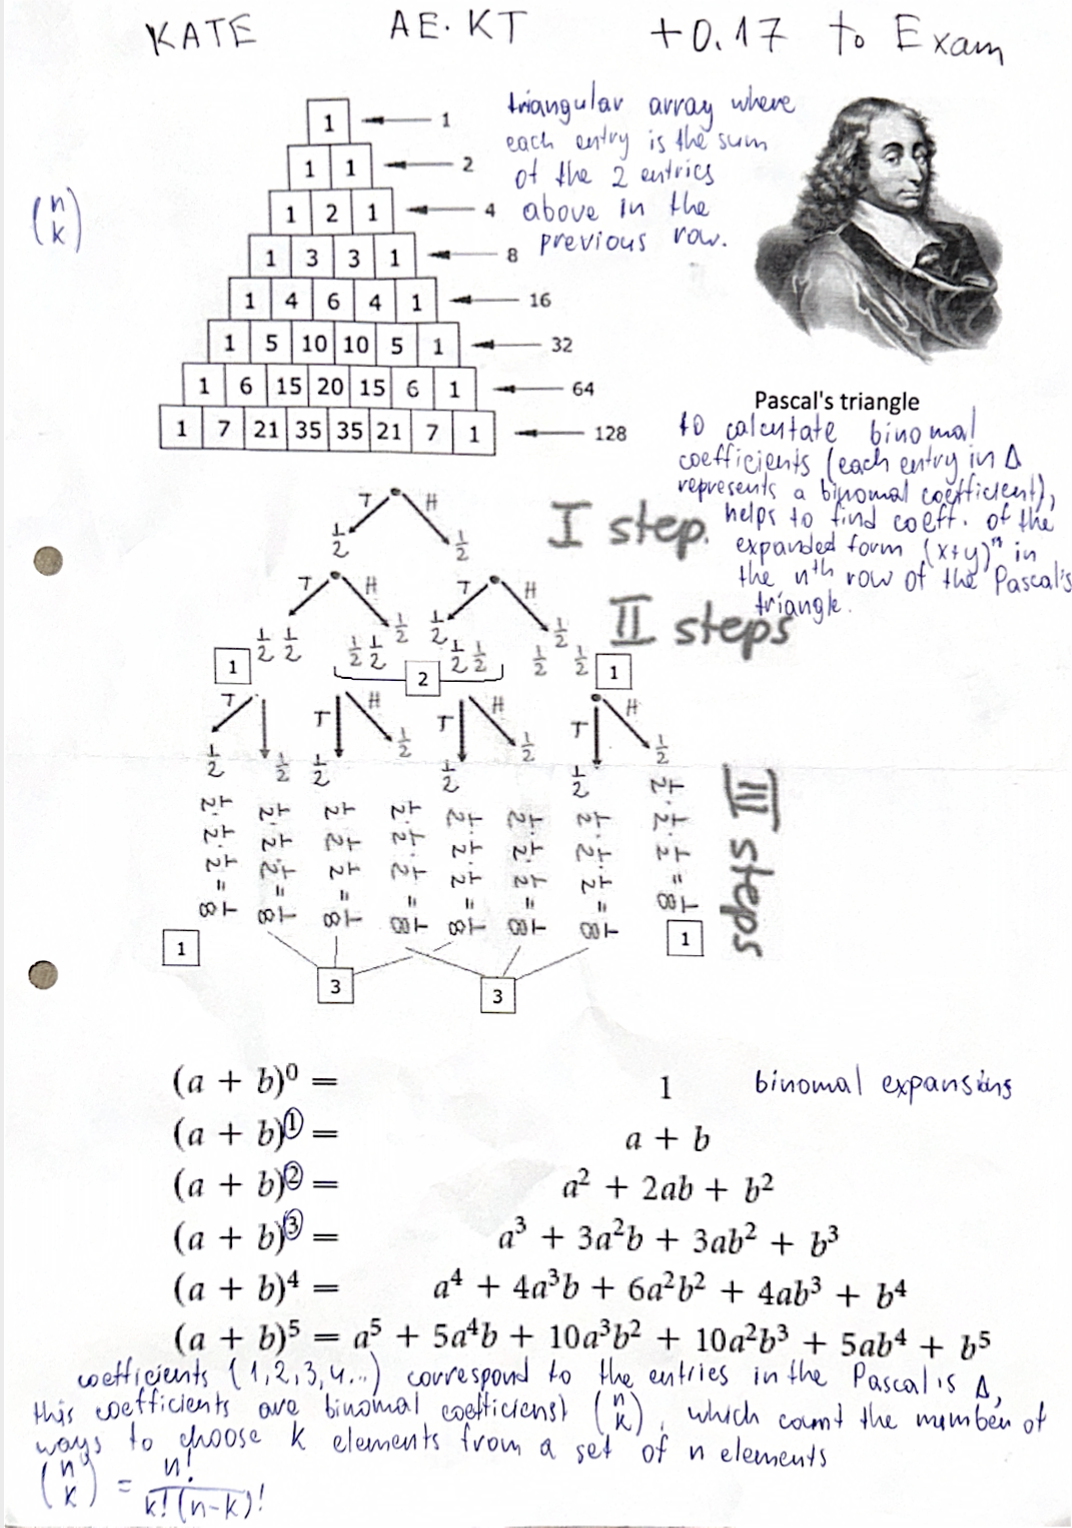 KATE AE. KT +0.17 to Exam
1 1
1 1 2
1 2 1 4
1 3 3 1 8
1 4 6 4 1 16
1 5 10 10 5 1 32
1 6 15 20 15 6 1 64
1 7 21 35 35 21 7 1 128
(n k)
triangular array where
each entry is the sum
of the 2 entries
above in the
previous row.
Pascal's triangle
to calcutate binomal
coefficients (each entry in Δ
represents a binomal coefficient),
helps to find coeff. of the
expanded form (x+y)ⁿ in
the nth row of the Pascal's
triangle.
T H
1/2 1/2
I step.
T H T H
1/2 1/2 1/2 1/2
II steps
1/2 1/2 1/2 1/2 1/2 1/2 1/2 1/2
1 2 1
T T H T H T H
1/2 1/2 1/2 1/2 1/2 1/2 1/2 1/2
III steps
1/2 · 1/2 · 1/2 = 1/8
1/2 · 1/2 · 1/2 = 1/8
1/2 1/2 1/2 = 1/8
1/2 · 1/2 · 1/2 = 1/8
1/2 · 1/2 · 1/2 = 1/8
1/2 · 1/2 · 1/2 = 1/8
1/2 · 1/2 · 1/2 = 1/8
1/2 · 1/2 · 1/2 = 1/8
1 3 3 1
(a + b)⁰ = 1 binomal expansions
(a + b)① = a + b
(a + b)② = a² + 2ab + b²
(a + b)③ = a³ + 3a²b + 3ab² + b³
(a + b)⁴ = a⁴ + 4a³b + 6a²b² + 4ab³ + b⁴
(a + b)⁵ = a⁵ + 5a⁴b + 10a³b² + 10a²b³ + 5ab⁴ + b⁵
coefficients (1,2,3,4...) correspond to the entries in the Pascal's Δ,
this coefficients are binomal (n k), which count the number of
ways to choose k elements from a set of n elements
(n k) = n! / k!(n-k)!